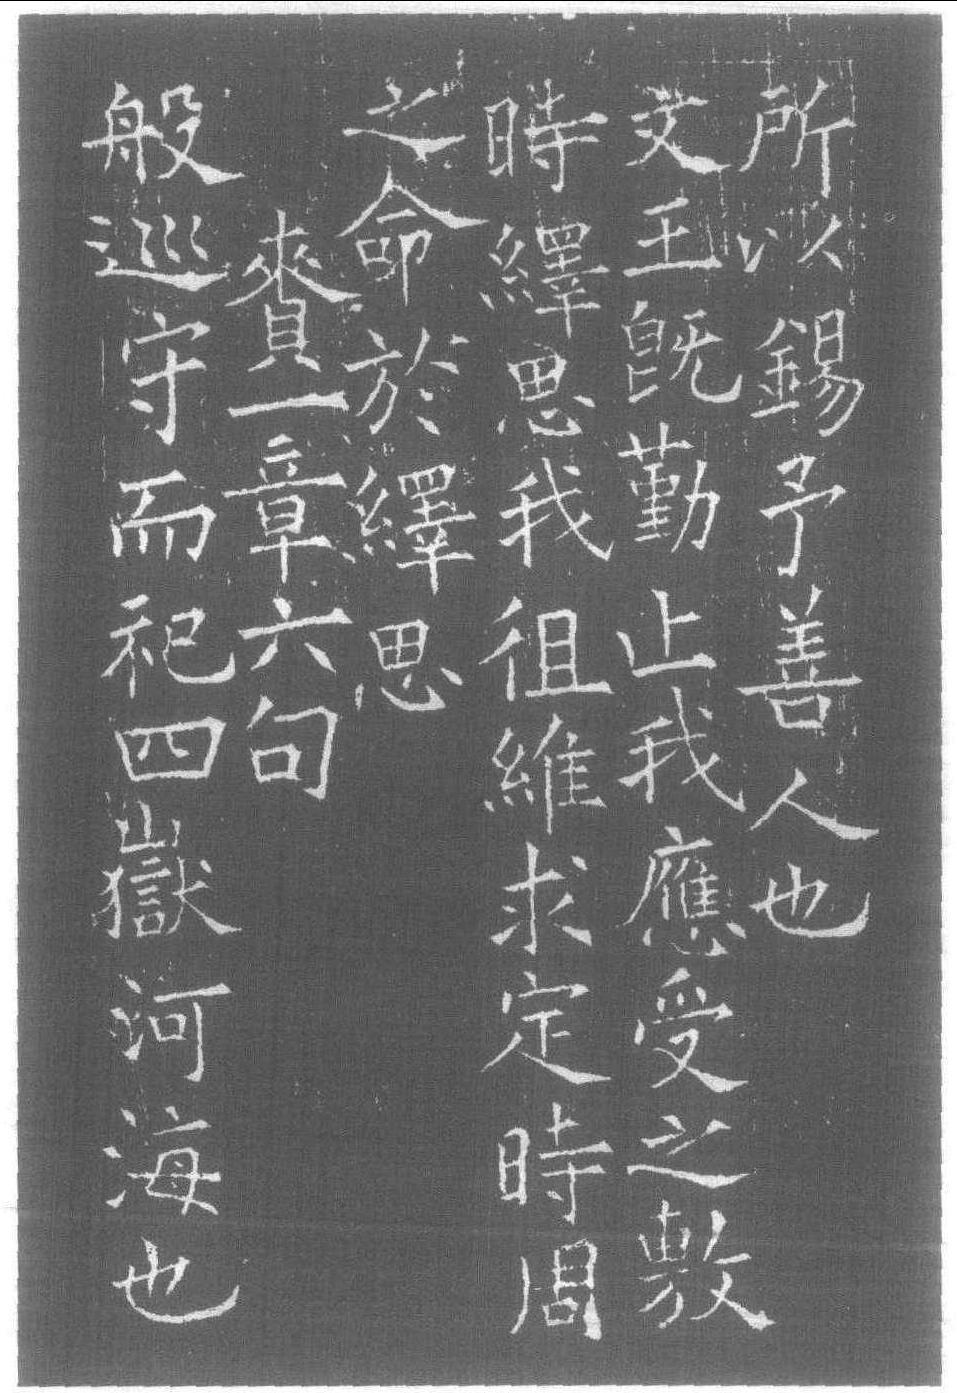 所以錫予善人也
文王旣勤止我應受之敷
時繹思我徂維求定時周
之命於繹思
賚一章六句
般巡守而祀四嶽河海也